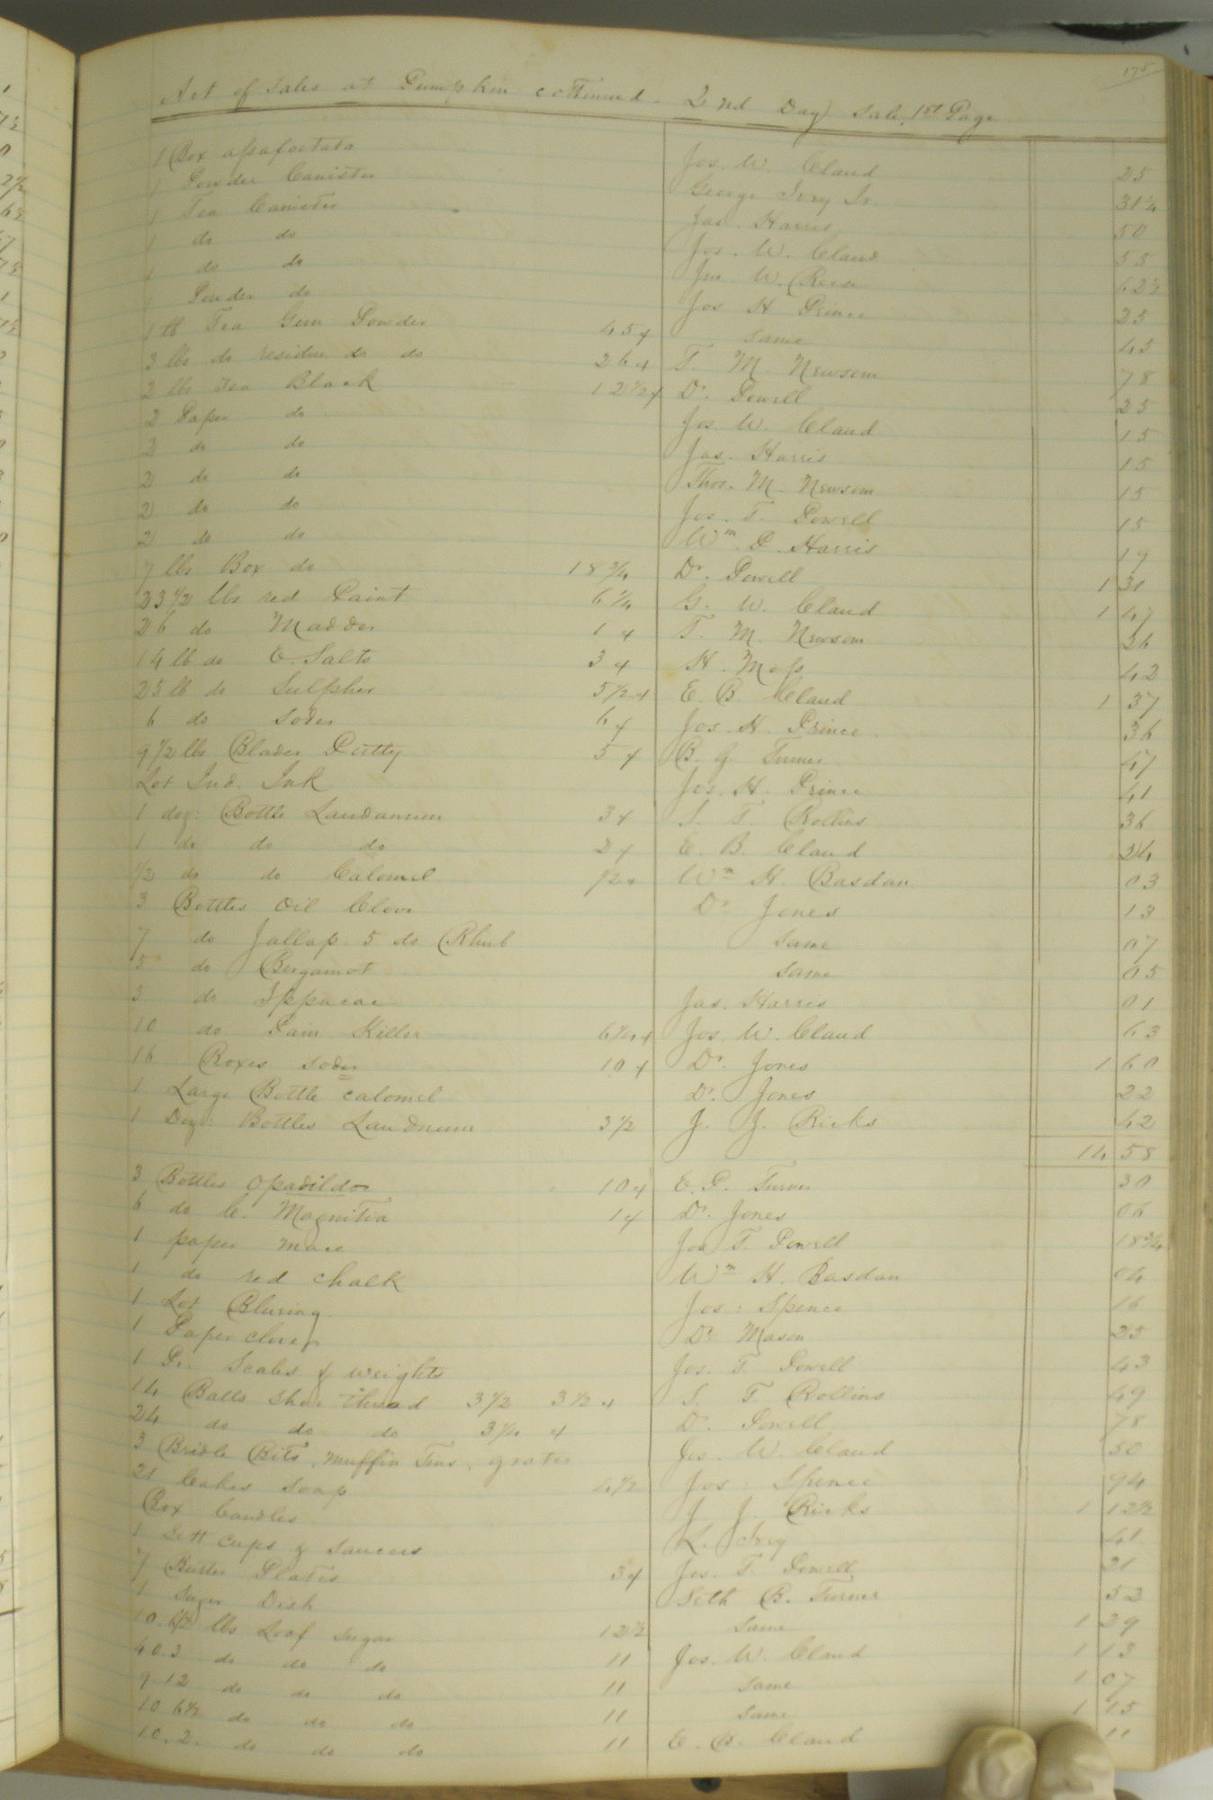 175
Act of Sales at Pumpkin continued - 2nd Day Sale 1st Page
1 Box assafoetata Jos. W. Claud 25
1 Powder Canister George Ivey Sr. 31 1/4
1 Tea Canister Jas. Harris 50
1 do do Jos. W. Claud 55
1 do do Jno W. Ricee 62 1/2
1 Powder do Jos H Prince 25
1 lb Tea Gun Powder 45 4 same 45
3 lbs do residue do do 26 4 T. M. Newsom 78
2 lbs Tea Black 12 1/2 4 Dr. Powell 25
2 Paper do Jos. W. Claud 15
2 do do Jas. Harris 15
2 do do Thos. M. Newsom 15
2 do do Jos. T. Powell 15
2 do do Wm. P. Harris 19
7 lbs Box do 18 3/4 Dr. Powell 1 31
23 1/2 lbs red Paint 6 1/4 G. W. Claud 1 47
26 do Madder 1 4 T. M. Newsom 26
14 lb do E. Salts 3 4 H. Moss 42
25 lb do Sulpher 5 1/2 4 E. B Claud 1 37
6 do Soder 6 4 Jos. H. Prince 36
9 1/2 lbs Blader Putty 5 4 B. G. Turner 47
Lot Ind. Ink Jos. H. Prince 41
1 doz: Bottle Laudanum 3 4 S. T. Rollins 36
1 do do do 2 4 E. B. Claud 24
1/2 do do Calomel 1/2 4 Wm H. Basdan 03
3 Bottles Oil Clove Dr Jones 13
7 do Jallap 5 do Rhub same 07
5 do Bergamot same 05
3 do Ippacac Jas. Harris 01
10 do Pain Killer 6 1/4 4 Jos. W. Claud 63
16 Boxes Soder 10 4 Dr. Jones 1 60
1 Large Bottle calomel Dr. Jones 22
1 Doz: Bottles Laudnum 3 1/2 J. J. Ricks 42
14 58
3 Bottles Opadildor 10 4 E. P. Turner 30
6 do C. Magnitia 1 4 Dr. Jones 06
1 paper mace Jos T. Powell 18 3/4
1 do red chalk Wm H. Basdan 04
1 Lot Bluring Jos: Spence 16
1 Paper cloves Dr Mason 25
1 Pr. Scales & weights Jos. T. Powell 43
14 Balls Shoe thread 3 1/2 3 1/2 4 S. T Rollins 49
24 do do do 3 1/4 4 Dr. Powell 78
3 Bridle Bits, Muffin Tins, grater Jos. W. Claud 50
21 Cakes Soap 4 1/2 Jos: Spence 94
Box Candles J J Ricks 1 12 1/2
1 Sett Cups & Saucers L. Ivey 41
7 Butter Plates 3 4 Jos. T. Powell 21
1 Suger Dish Seth B. Turner 52
10. 6 1/2 lbs Loaf Sugar 12 1/2 same 1 29
40.3 do do do 11 Jos. W. Claud 1 13
9 12 do do do 11 same 1 07
10 6 1/2 do do do 11 same 1 15
10. 2. do do do 11 E. B. Claud 11